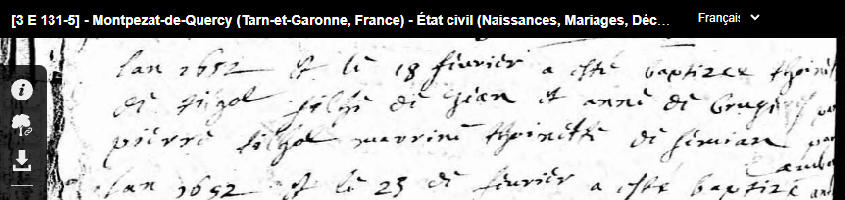 [3 E 131-5] - Montpezat-de-Quercy (Tarn-et-Garonne, France) - État civil (Naissances, Mariages, Déc...
Français
lan 1652 et le 18 feuvrier a esté baptizee thoinet
de filhe de jean et anne de
pierre marrine thoinette de
lan 1652 et le 25 de feuvrier a esté baptizé